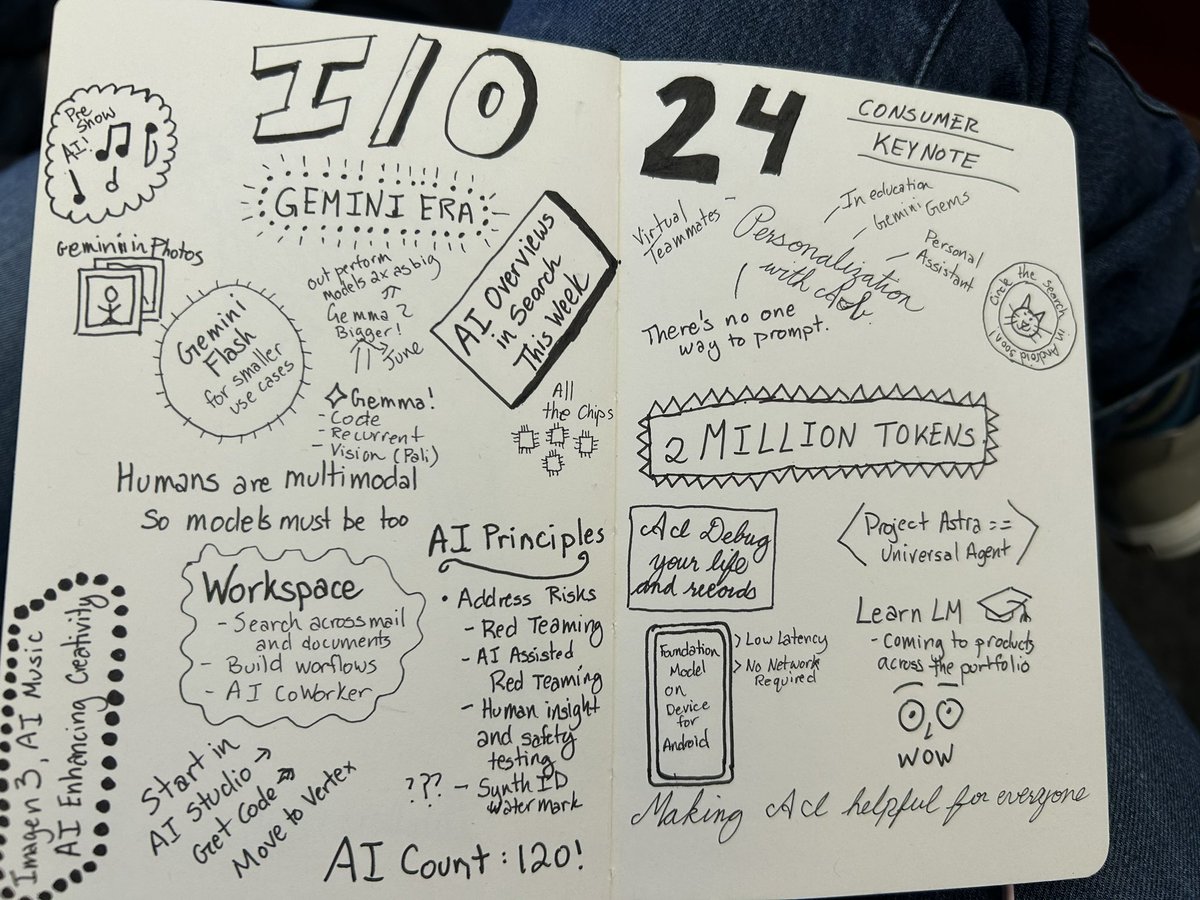 I/O
24
CONSUMER
KEYNOTE
Pre
Show
AI!
GEMINI ERA
Geminiin in Photos
Gemini
Flash
for smaller
use cases
out perform
models 2x as big
Gemma 2
Bigger!
June
Gemma!
- Code
- Recurrent
- Vision (Pali)
AI Overviews
in Search
This Week
All
the Chips
Humans are multimodal
So models must be too
Workspace
- Search across mail
and documents
- Build worflows
- AI CoWorker
AI Principles
• Address Risks
- Red Teaming
- AI Assisted
Red Teaming
- Human insight
and safety
testing
??? - Synth ID
Watermark
Imagen 3, AI Music
AI Enhancing Creativity
Start in
AI Studio →
Get Code →
Move to Vertex
AI Count: 120!
Virtual
Teammates -
Personalization
with AI
- In education
- Gemini Gems
- Personal
Assistant
There's no one
way to prompt.
Circle the Search in Android soon!
2 MILLION TOKENS
AI Debug
your life
and records
<Project Astra ==
Universal Agent>
Learn LM
- Coming to products
across the portfolio
Foundation
Model
on
Device
for
Android
> Low Latency
> No Network
Required
WOW
Making AI helpful for everyone